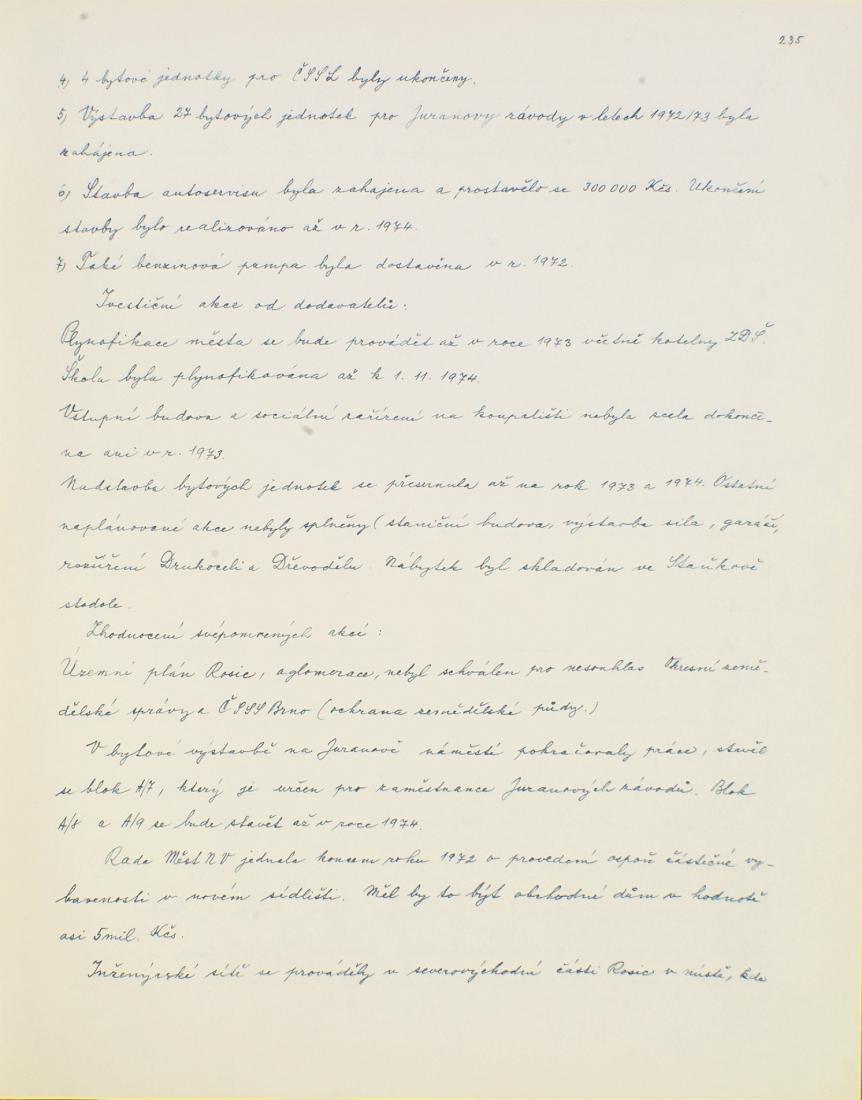 235
4) 4 bytové jednotky pro ČSSZ byly ukončeny.
5) Výstavba 27 bytových jednotek pro Juranovy závody v letech 1972/73 byla
zahájena.
6) Stavba autoservisu byla zahájena a prostavělo se 300 000 Kčs. Ukončení
stavby bylo realizováno až v r. 1974.
7) Také benzinová pumpa byla dostavěna v r. 1972.
Ivestiční akce od dodavatelů:
Plynofikace města se bude provádět až v roce 1973 včetně kotelny ZDŠ.
Škola byla plynofikována až k 1. 11. 1974.
Vstupní budova a sociální zařízení na koupališti nebyla zcela dokonče-
na ani v r. 1973.
Nadstavba bytových jednotek se přesunula až na rok 1973 a 1974. Ostatní
naplánované akce nebyly splněny (staniční budova, výstavba sila, garáží,
rozšíření Drukocelu a Dřevodělu. Nábytek byl skladován ve Staňkově
stodole.
Zhodnocení svépomocných akcí:
Územní plán Rosic, aglomerace, nebyl schválen pro nesouhlas Okresní země-
dělské správy a ČSSS Brno (ochrana zemědělské půdy.)
V bytové výstavbě na Juranově náměstí pokračovaly práce, stavěl
se blok A/7, který je určen pro zaměstnance Juranových závodů. Blok
A/8 a A/9 se bude stavět až v roce 1974.
Rada Měst NV jednala koncem roku 1972 o provedení aspoň částečné vy-
bavenosti v novém sídlišti. Měl by to být obchodní dům v hodnotě
asi 5 mil. Kčs.
Inženýrské sítě se prováděly v severovýchodní části Rosic v místě, kde